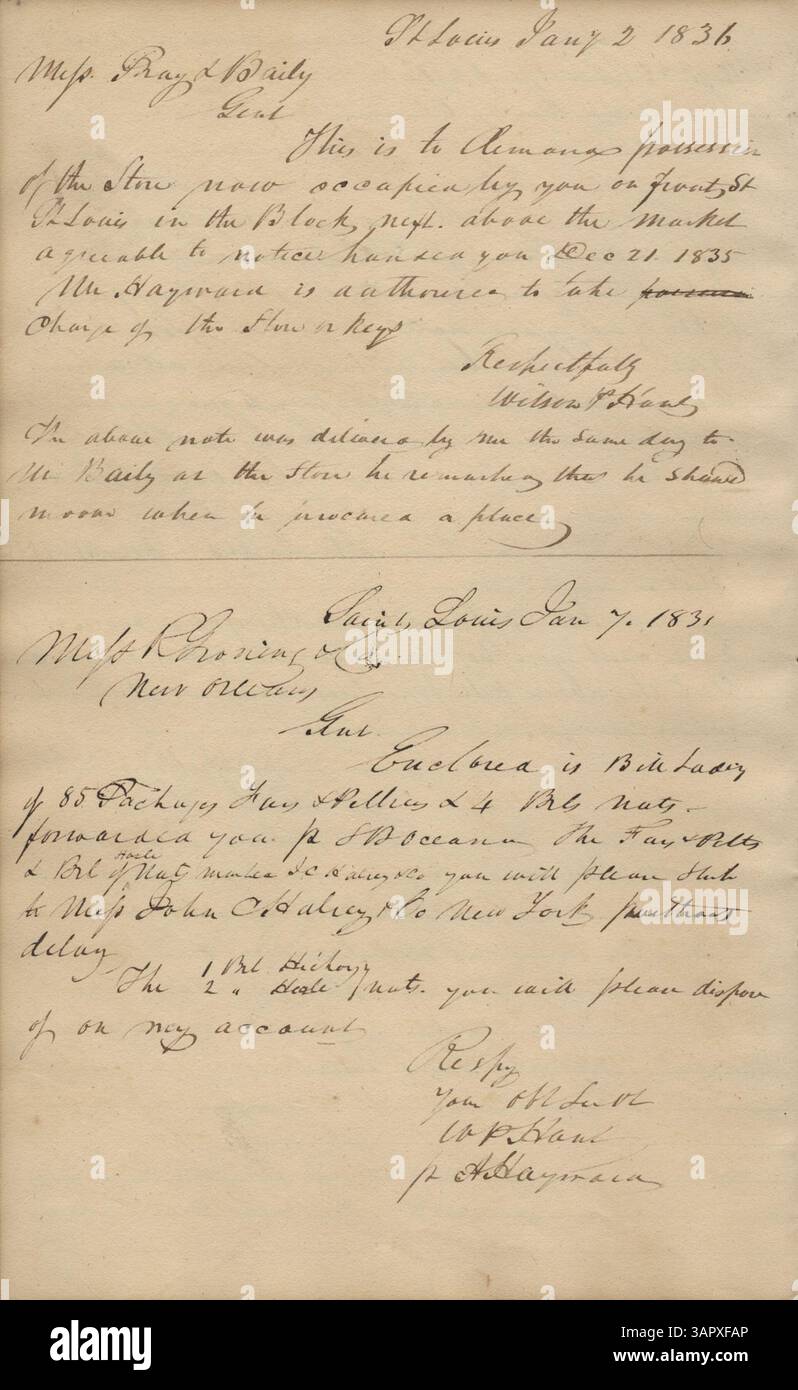 St Louis Jany 2 1836
Mess. Pray & Baily
Gent
This is to demand possession
of the Store now occupied by you on front St
St Louis in the Block next above the market
agreable to notice handed you Dec 21. 1835
Mr Hayward is authoured to take
Charge of the Store or Keys
Respectfully
Wilson P Hunt
The above note was delivered by me the same day to
Mr Baily at the Store he remarked that he should
moove when he procured a place
Saint Louis Jan 7. 183
Mess &
New Orleans
Gent
Enclosed is Bill Lading
of 85 Packages Furs & Peltries & 4 Brls nuts
forwarded you p S B Oceana The Furs & Pelts
& Brl of Hazle Nuts marked J C Halsey & Co you will please
to Mess John C. Halsey & Co New York without
delay
The 1 Brl Hickory
2 " Hazle nuts. you will please dispose
of on my account
Respy
Your Obt Servt
W P Hunt
p A Hayward
alamy
Image ID: 3APXFAP
www.alamy.com